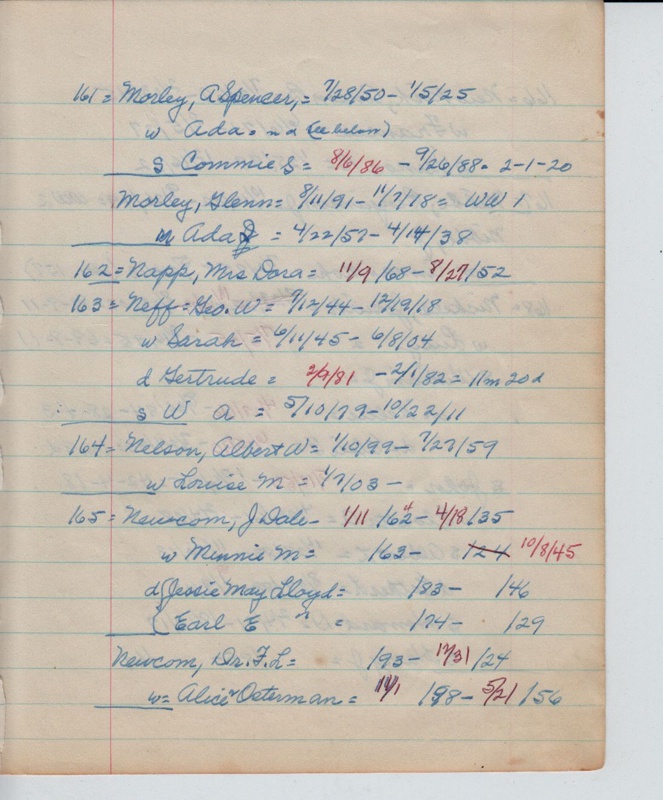 161 = Morley, A Spencer, = 7/28/50 - 1/5/25
w Ada = n d (see below)
s Commie S = 8/6/86 - 9/26/88 = 2-1-20
Morley, Glenn = 8/11/91 - 11/7/18 = WW 1
w Ada = 4/22/57 - 4/14/38
162 = Napp, Mrs Dora = 11/9/68 - 8/27/52
163 = Neff = Geo. W = 9/12/44 - 12/19/18
w Sarah = 6/11/45 - 6/8/04
d Gertrude = 2/9/81 - 2/1/82 = 11m 20d
s W A = 5/10/79 - 10/22/11
164 = Nelson, Albert W = 1/10/99 - 7/27/59
w Louise M = 1/7/03 -
165 = Newcom, J Dale - 1/11/62 - 4/18/35
w Minnie M = /63 - /24 10/8/45
d Jessie May Lloyd = /83 - /46
Earl E " = /74 - /29
Newcom, Dr. F. L = /93 - 12/31/24
w = Alice Osterman = 11/1 /98 - 5/21/56